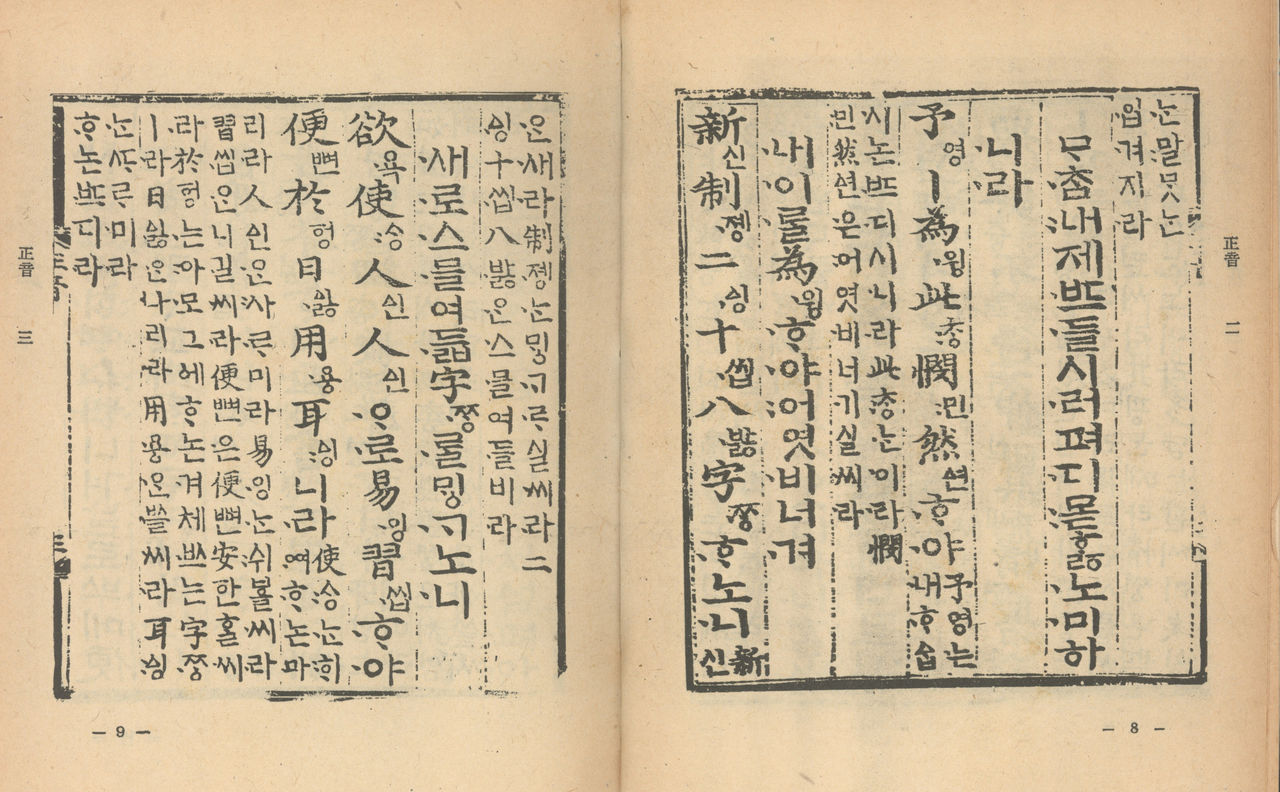 正音 二
ᄂᆞᆫ말ᄆᆞᆺᄂᆞᆫ
입겨지라
ᄆᆞᄎᆞᆷ내제ᄠᅳ들시러펴디몯ᄒᆞᇙ노미하
니라
予영ㅣ為윙此ᄎᆞᆼ憫민然ᅀᅧᆫᄒᆞ야予영는내ᄒᆞᅀᆞᆸ
시논ᄠᅳ디시니라此ᄎᆞᆼᄂᆞᆫ이라憫
민然ᅀᅧᆫ은어엿비너기실씨라
내이ᄅᆞᆯ為윙ᄒᆞ야어엿비너겨
新신制졩二ᅀᅵᆼ十씹八바ᇙ字ᄍᆞᆼᄒᆞ노니新
신
— 8 —
은새라制졩ᄂᆞᆫᄆᆡᇰᄀᆞᄅᆞ실씨라二
ᅀᅵᆼ十씹八바ᇙ은스믈여들비라
새로스믈여듧字ᄍᆞᆼᄅᆞᆯᄆᆡᇰᄀᆞ노니
欲욕使ᄉᆞᆼ人ᅀᅵᆫ人ᅀᅵᆫᄋᆞ로易잉習씹ᄒᆞ야
便뼌於ᅙᅥᆼ日ᅀᅵᇙ用용耳ᅀᅵᆼ니라使ᄉᆞᆼᄂᆞᆫᄒᆡ
여ᄒᆞ논마
리라人ᅀᅵᆫᄋᆞᆫ사ᄅᆞ미라易잉ᄂᆞᆫ쉬ᄫᅳᆯ씨라
習씹은니길씨라便뼌은便뼌安한ᄒᆞᆯ씨
라於ᅙᅥᆼ는아모그에ᄒᆞ논겨체ᄡᅳ는字ᄍᆞᆼ
ㅣ라日ᅀᅵᇙᄋᆞᆫ나리라用용ᄋᆞᆫᄡᅳᆯ씨라耳ᅀᅵᆼ
ᄂᆞᆫᄯᆞᄅᆞ미라
ᄒᆞ논ᄠᅳ디라
正音 三
— 9 —